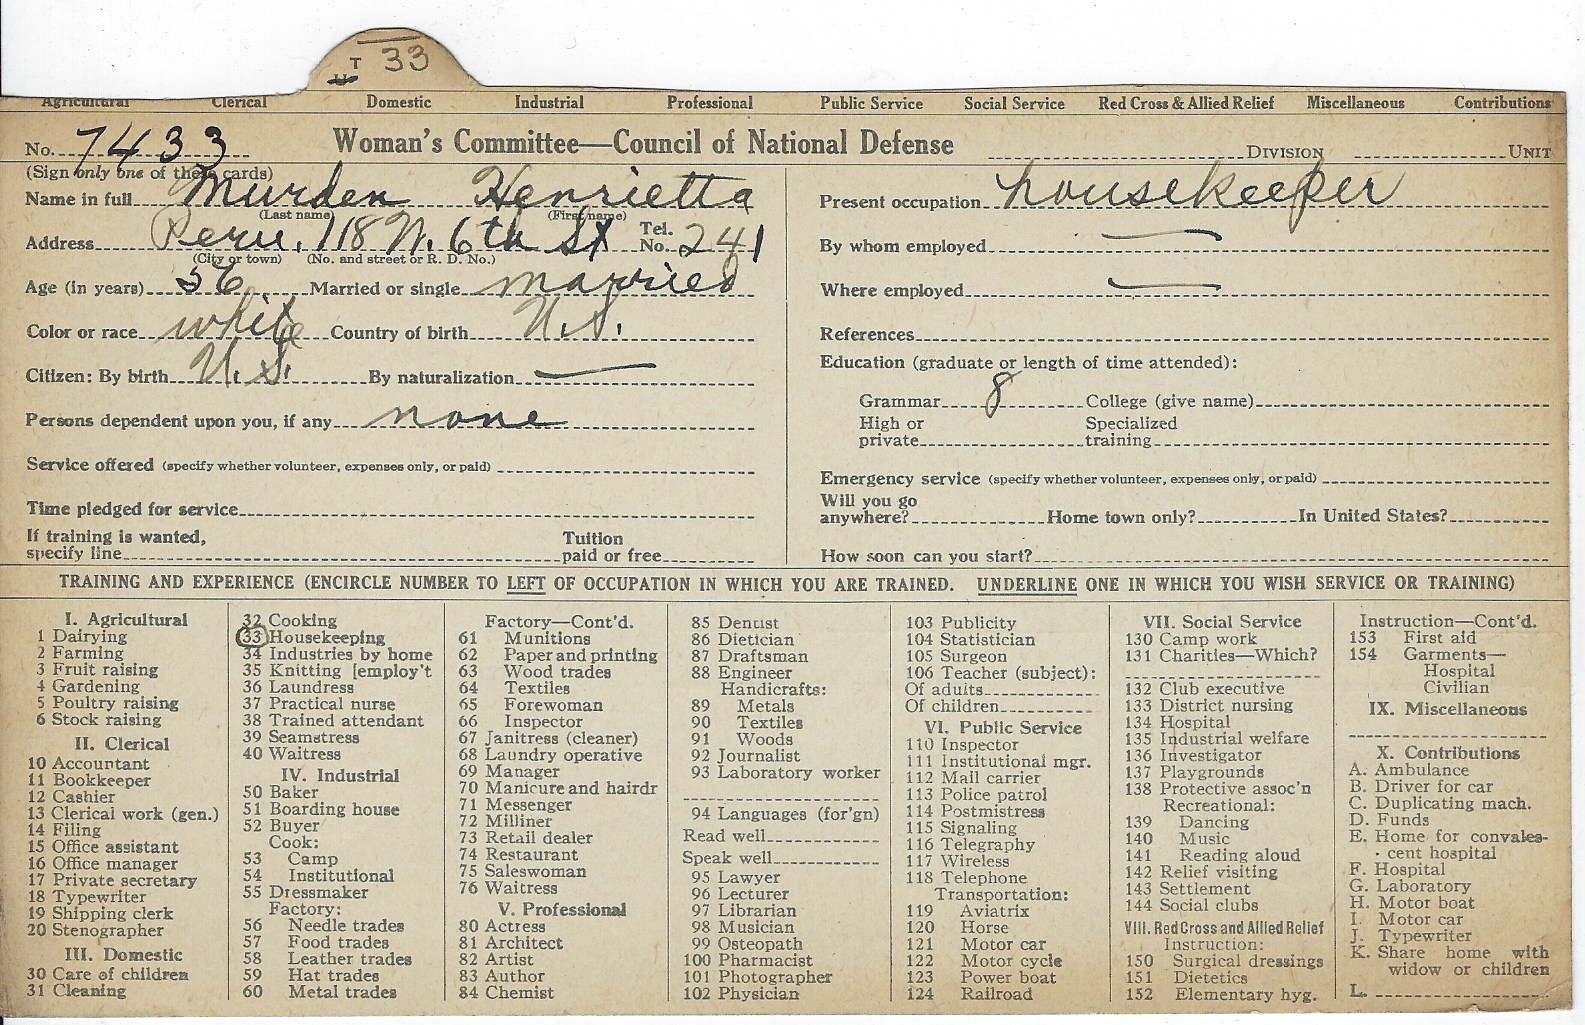 T 33
Agricultural Clerical Domestic Industrial Professional Public Service Social Service Red Cross & Allied Relief Miscellaneous Contributions
No. 7433 Woman's Committee—Council of National Defense DIVISION UNIT
(Sign only one of these cards)
Name in full Murden Henrietta
(Last name) (First name)
Address Peru, 118 N. 6th St Tel. No. 241
(City or town) (No. and street or R. D. No.)
Age (in years) 56 Married or single married
Color or race white Country of birth U.S.
Citizen: By birth U.S. By naturalization —
Persons dependent upon you, if any none
Service offered (specify whether volunteer, expenses only, or paid)
Time pledged for service
If training is wanted,
specify line Tuition paid or free
Present occupation housekeeper
By whom employed —
Where employed —
References
Education (graduate or length of time attended):
Grammar 8 College (give name)
High or private Specialized training
Emergency service (specify whether volunteer, expenses only, or paid)
Will you go
anywhere? Home town only? In United States?
How soon can you start?
TRAINING AND EXPERIENCE (ENCIRCLE NUMBER TO LEFT OF OCCUPATION IN WHICH YOU ARE TRAINED. UNDERLINE ONE IN WHICH YOU WISH SERVICE OR TRAINING)
I. Agricultural
1 Dairying
2 Farming
3 Fruit raising
4 Gardening
5 Poultry raising
6 Stock raising
II. Clerical
10 Accountant
11 Bookkeeper
12 Cashier
13 Clerical work (gen.)
14 Filing
15 Office assistant
16 Office manager
17 Private secretary
18 Typewriter
19 Shipping clerk
20 Stenographer
III. Domestic
30 Care of children
31 Cleaning
32 Cooking
33 Housekeeping
34 Industries by home
35 Knitting [employ't
36 Laundress
37 Practical nurse
38 Trained attendant
39 Seamstress
40 Waitress
IV. Industrial
50 Baker
51 Boarding house
52 Buyer
Cook:
53 Camp
54 Institutional
55 Dressmaker
Factory:
56 Needle trades
57 Food trades
58 Leather trades
59 Hat trades
60 Metal trades
Factory—Cont'd.
61 Munitions
62 Paper and printing
63 Wood trades
64 Textiles
65 Forewoman
66 Inspector
67 Janitress (cleaner)
68 Laundry operative
69 Manager
70 Manicure and hairdr
71 Messenger
72 Milliner
73 Retail dealer
74 Restaurant
75 Saleswoman
76 Waitress
V. Professional
80 Actress
81 Architect
82 Artist
83 Author
84 Chemist
85 Dentist
86 Dietician
87 Draftsman
88 Engineer
Handicrafts:
89 Metals
90 Textiles
91 Woods
92 Journalist
93 Laboratory worker
94 Languages (for'gn)
Read well
Speak well
95 Lawyer
96 Lecturer
97 Librarian
98 Musician
99 Osteopath
100 Pharmacist
101 Photographer
102 Physician
103 Publicity
104 Statistician
105 Surgeon
106 Teacher (subject):
Of adults
Of children
VI. Public Service
110 Inspector
111 Institutional mgr.
112 Mail carrier
113 Police patrol
114 Postmistress
115 Signaling
116 Telegraphy
117 Wireless
118 Telephone
Transportation:
119 Aviatrix
120 Horse
121 Motor car
122 Motor cycle
123 Power boat
124 Railroad
VII. Social Service
130 Camp work
131 Charities—Which?
132 Club executive
133 District nursing
134 Hospital
135 Industrial welfare
136 Investigator
137 Playgrounds
138 Protective assoc'n
Recreational:
139 Dancing
140 Music
141 Reading aloud
142 Relief visiting
143 Settlement
144 Social clubs
VIII. Red Cross and Allied Relief
Instruction:
150 Surgical dressings
151 Dietetics
152 Elementary hyg.
Instruction—Cont'd.
153 First aid
154 Garments—
Hospital
Civilian
IX. Miscellaneous
X. Contributions
A. Ambulance
B. Driver for car
C. Duplicating mach.
D. Funds
E. Home for convales-
cent hospital
F. Hospital
G. Laboratory
H. Motor boat
I. Motor car
J. Typewriter
K. Share home with
widow or children
L.